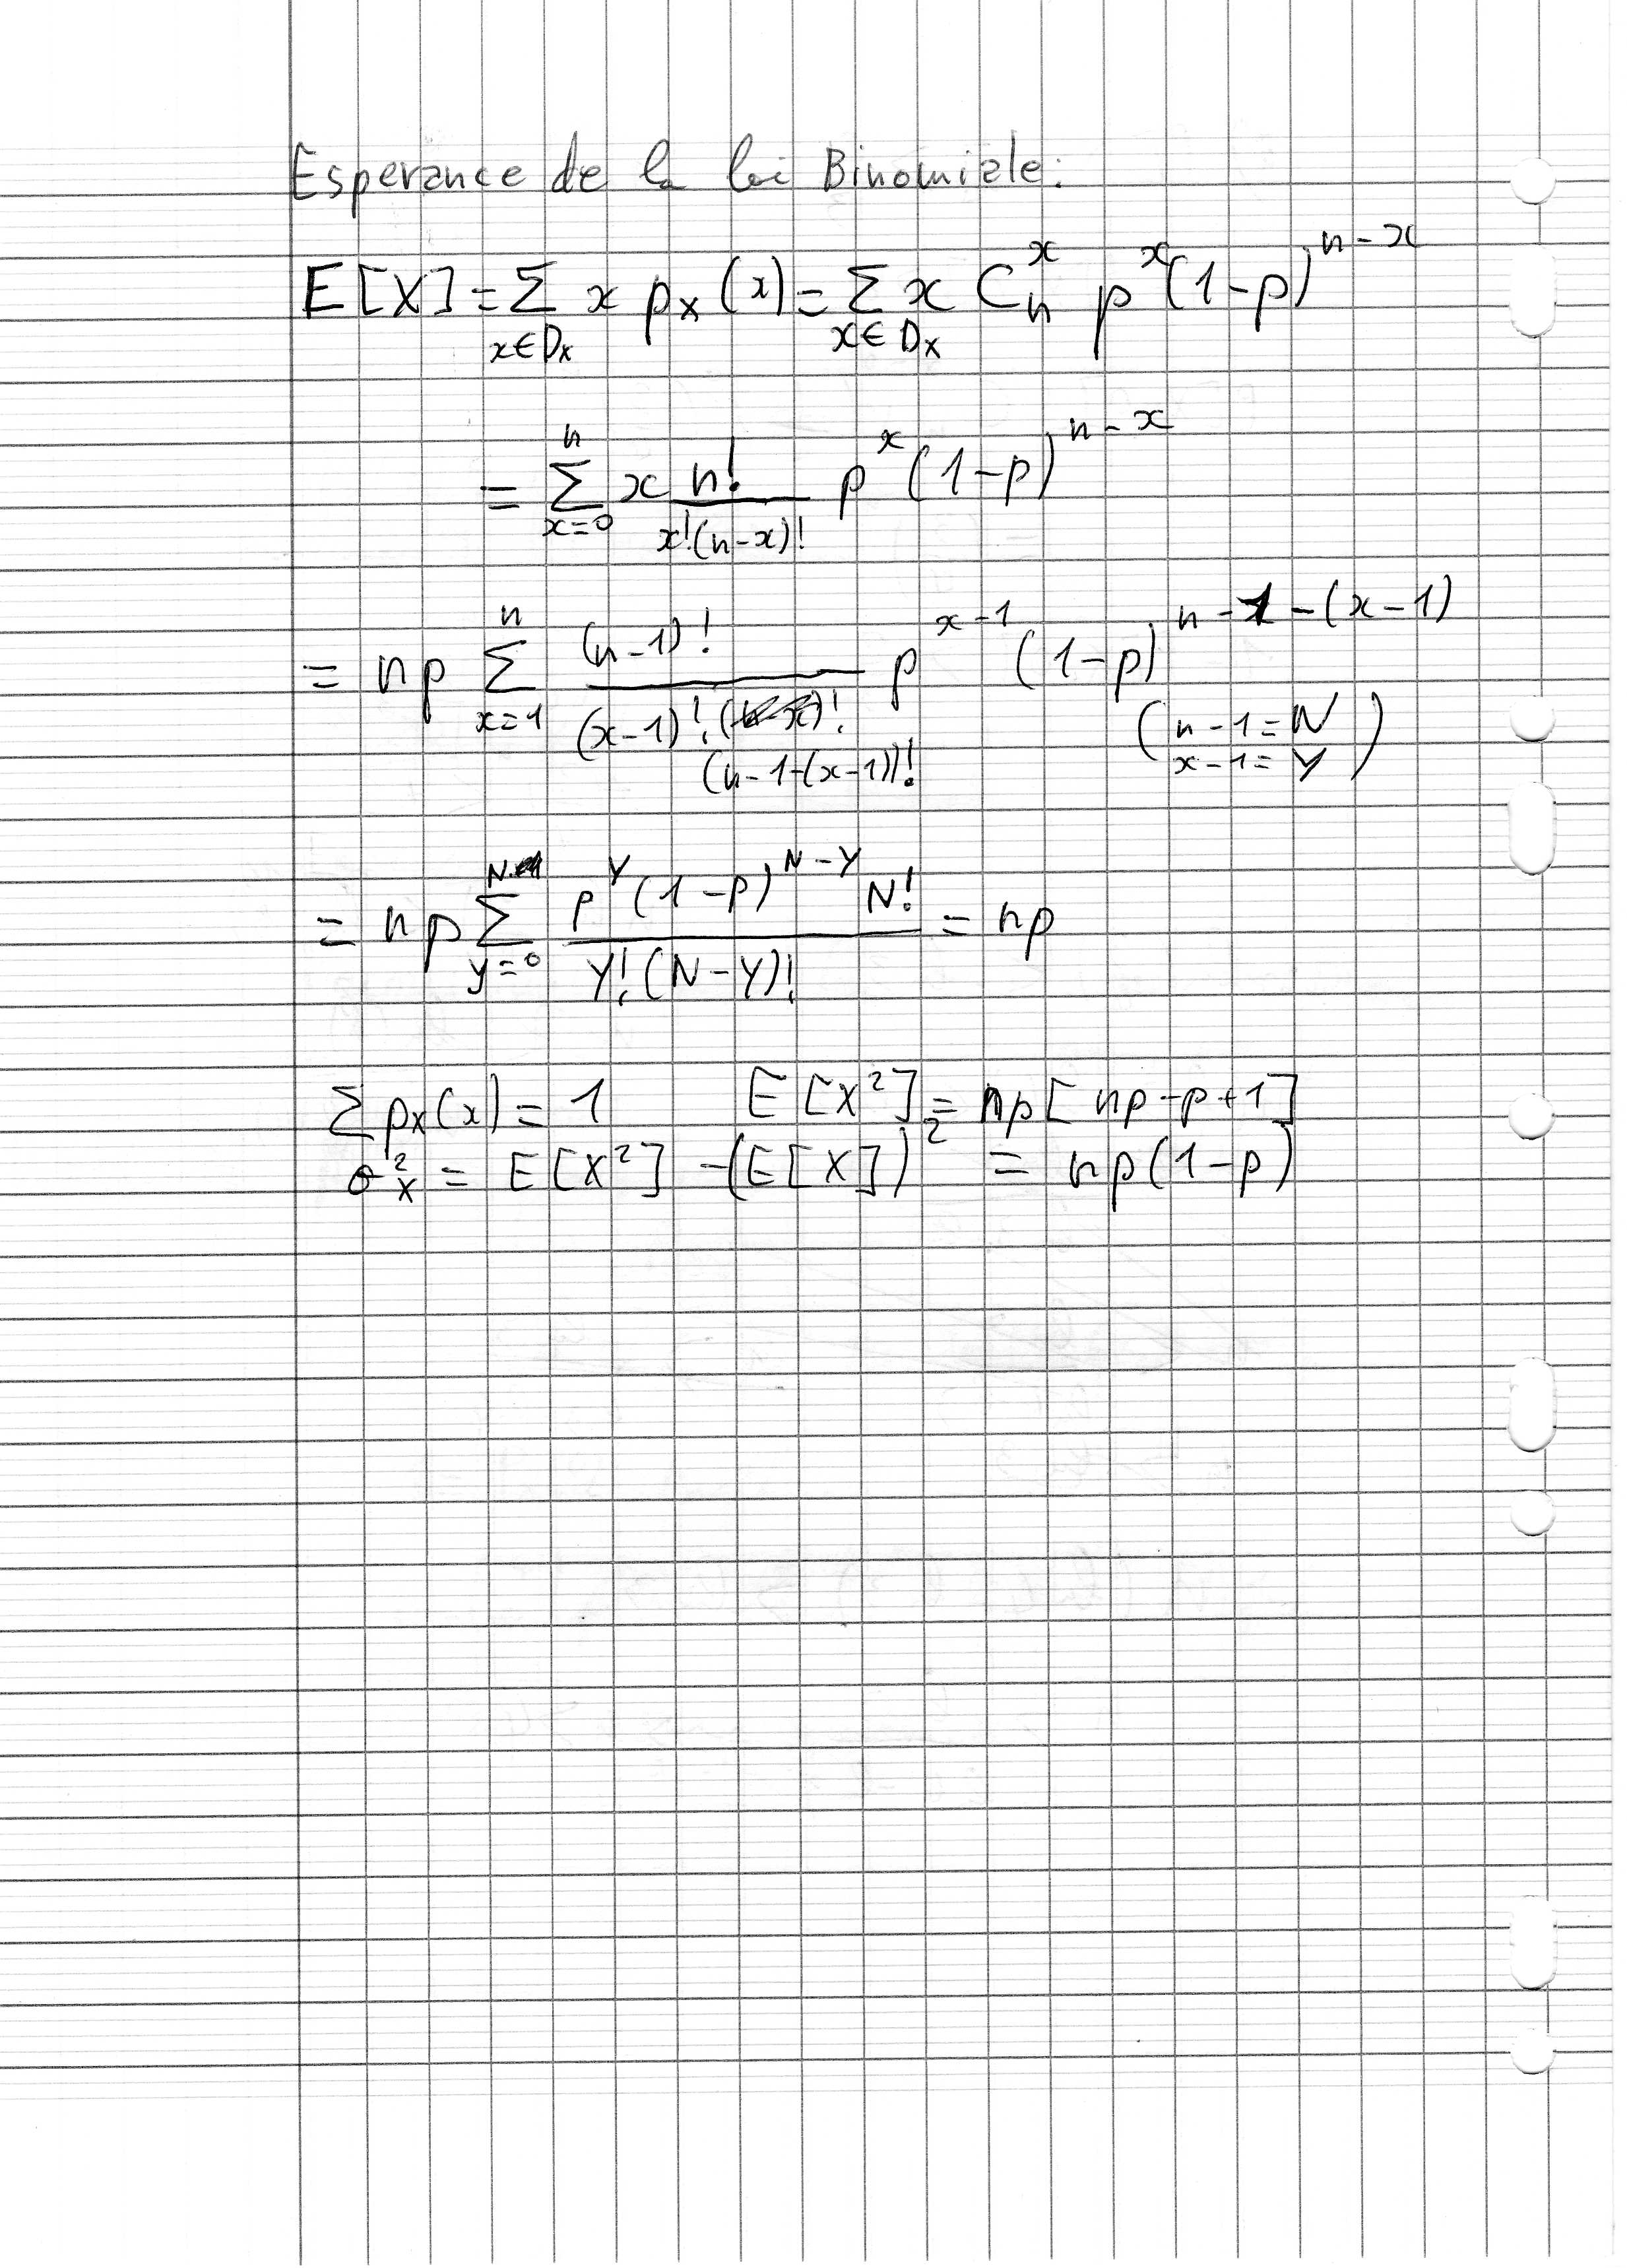 Esperance de la loi Binomiale:
E[X] = Σ_{x∈D_X} x p_X(x) = Σ_{x∈D_X} x C_n^x p^x (1-p)^{n-x}
= Σ_{x=0}^{n} x n! / (x!(n-x)!) p^x (1-p)^{n-x}
= np Σ_{x=1}^{n} (n-1)! / ((x-1)! (n-1-(x-1))!) p^{x-1} (1-p)^{n-1-(x-1)}
(n-1=N
x-1=Y)
= np Σ_{y=0}^{N} p^Y (1-p)^{N-Y} N! / (Y!(N-Y)!) = np
Σ p_X(x) = 1 E[X²] = np[np-p+1]
σ_X² = E[X²] - (E[X])² = np(1-p)